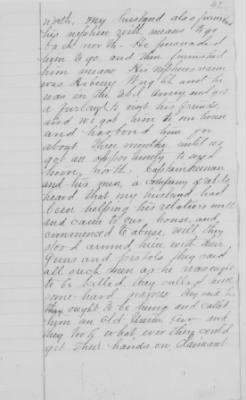 north, my husband also furnished
his nephew with means to go
back north. He persuaded
him to go, and then furnished
him means. His nephews name
was
was in the Rebel Army and got
a furlought to visit his friends,
and we got him to our house
and harbored him for
about three months until we
got an oppertunity to send
him north. Captain
and his men, a company of rebels
heard that my husband had
been helping his relations north
and came to our house, and
commenced to abuse, with they
stood around him with their
Guns and pistols they said
all such men as he was ought
to be balled, they called him
some hard names they said he
they ought to be hung and called
him an old Union
they took what ever they could
get their hands on. Claimant